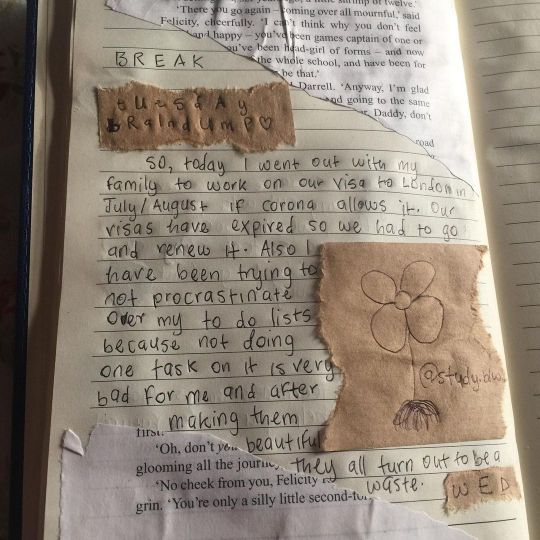 'There you go again – coming over all mournful,' said
Felicity, cheerfully. 'I can't think why you don't feel
and happy – you've been games captain of one or
you've been head-girl of forms – and now
the whole school, and have been for
be that.'
Darrell. 'Anyway, I'm glad
and going to the same
Daddy, don't
road
BREAK
tUesdAy
bRaIndUmp♡
So, today I went out with my
family to work on our visa to London in
July/August if corona allows it. Our
visas have expired so we had to go
and renew it. Also I
have been trying to
not procrastinate
Over my to do lists
because not doing
one task on it is very
bad for me and after
making them
beautiful
they all turn out to be a
waste.
@study.
first.
'Oh, don't you
glooming all the journey
'No cheek from you, Felicity
grin. 'You're only a silly little second-
WED